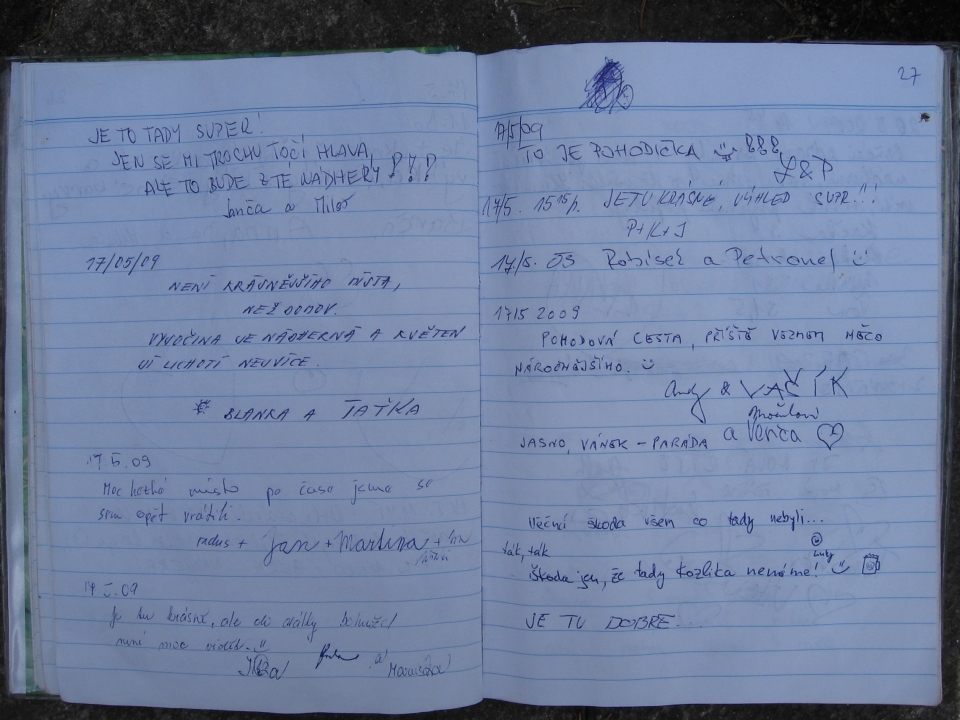 JE TO TADY SUPER!
JEN SE MI TROCHU TOČÍ HLAVA,
ALE TO BUDE Z TÉ NÁDHERY!!!
Janča a Miloš
17/05/09
NENÍ KRÁSNĚJŠÍHO MÍSTA,
NEŽ DOMOV.
VYSOČINA JE NÁDHERNÁ A KVĚTEN
JÍ LICHOTÍ NEJVÍCE.
BLANKA A TAŤKA
17.5.09
Moc hezké místo po čase jsme se
sem opět vrátili.
radus + Jan + Martina +
17.5.09
Je tu krásně, ale do dálky bohužel
není moc vidět.
a
27
17/5/09
TO JE POHODIČKA !!!
L&P
17/5. 15 15 h. JE TU KRÁSNĚ, VÝHLED SUPR!!!
P+K+J
17/5. 09 Robisek a Petronel
17/5 2009
POHODOVÁ CESTA, PŘÍŠTĚ VEZMEM NĚCO
NÁROČNĚJŠÍHO.
Andy & VAŠÍK
JASNO, VÁNEK - PARÁDA a Venca
Věčná škoda všem co tady nebyli...
ták, ták
škoda jen, že tady Kozlíka nemáme!
JE TU DOBŘE...